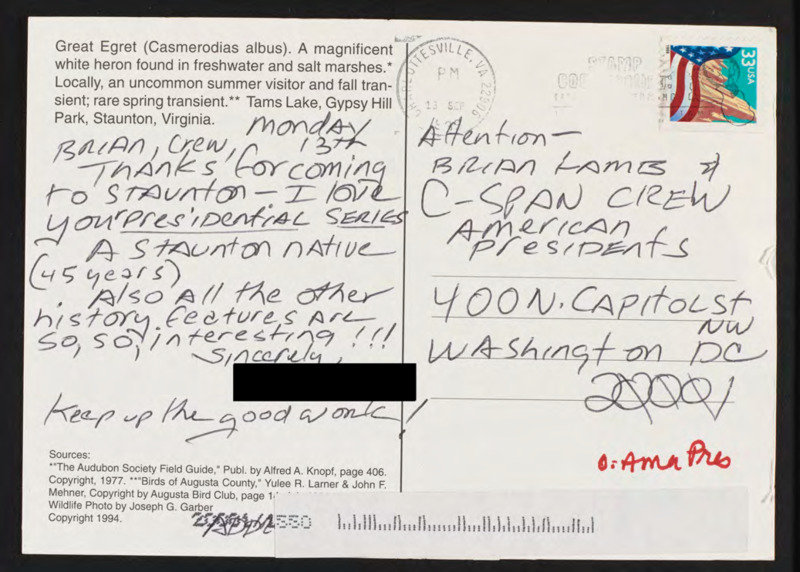 Great Egret (Casmerodias albus). A magnificent
white heron found in freshwater and salt marshes.*
Locally, an uncommon summer visitor and fall tran-
sient; rare spring transient.** Tams Lake, Gypsy Hill
Park, Staunton, Virginia.
Monday
13th
BRIAN, Crew,
Thanks for coming
to STAUNTON - I love
your PRESIDENTIAL SERIES
A STAUNTON native
(45 years)
Also All the other
history features are
so, so, interesting!!!
Sincerely,
Keep up the good work!
Sources:
*"The Audubon Society Field Guide," Publ. by Alfred A. Knopf, page 406.
Copyright, 1977. **"Birds of Augusta County," Yulee R. Larner & John F.
Mehner, Copyright by Augusta Bird Club, page
Wildlife Photo by Joseph G. Garber
Copyright 1994.
CHARLOTTESVILLE, VA
PM
13 SEP
33USA
Attention -
BRIAN LAMB &
C-SPAN CREW
American
Presidents
400 N. Capitol St
NW
Washington DC
20001
O: Ama Pres